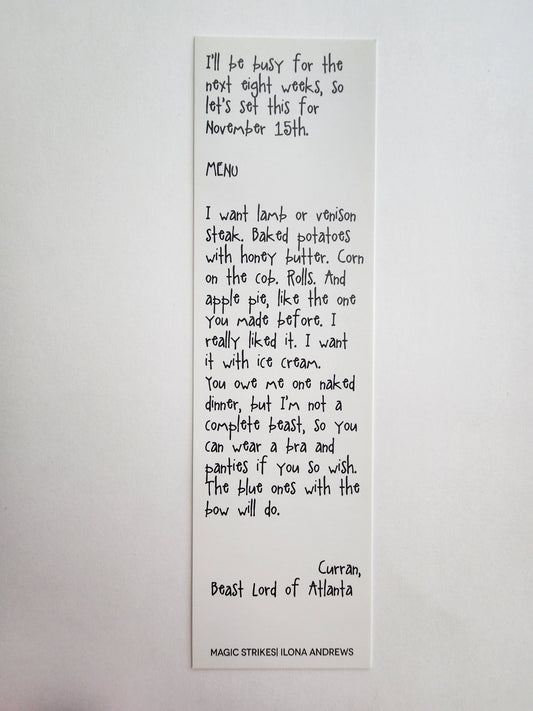 I'll be busy for the
next eight weeks, so
let's set this for
November 15th.
MENU
I want lamb or venison
steak. Baked potatoes
with honey butter. Corn
on the cob. Rolls. And
apple pie, like the one
you made before. I
really liked it. I want
it with ice cream.
You owe me one naked
dinner, but I'm not a
complete beast, so you
can wear a bra and
panties if you so wish.
The blue ones with the
bow will do.
Curran,
Beast Lord of Atlanta
MAGIC STRIKES| ILONA ANDREWS